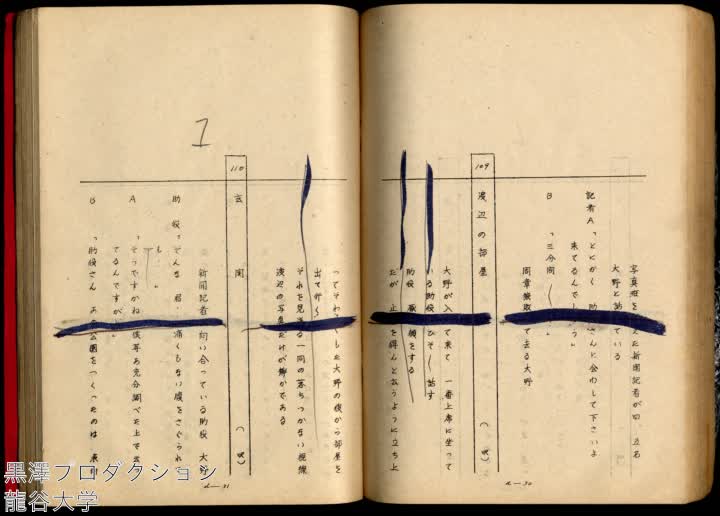 写真班を
た新聞記者が四、五名
大野と話している
記者A「とにかく 助
さんに会わして下さいよ
来てるんで
う」
B 「三分間
」
周章狼狽
て去る大野
109 渡辺の部屋 （夜）
大野が入
て来て 一番上席に坐って
いる助役
ひそ
話す
助役
顔をする
だが
を得んと云うように立ち上
L—30
ってそわ
した大野の後から部屋を
出て行く
それを見送る一同の落ちつかない視線
渡辺の写真だけが静かである
1
110 玄関 （夜）
新聞記者
向い合っている助役 大野
助役「そんな 君
痛くもない腹をさぐられ
も……」
A 「そうですかね
僕等も充分調べた上で云
てるんですが
B 「助役さん あ
公園をつくったのは
L—31
黒澤プロダクション
龍谷大学